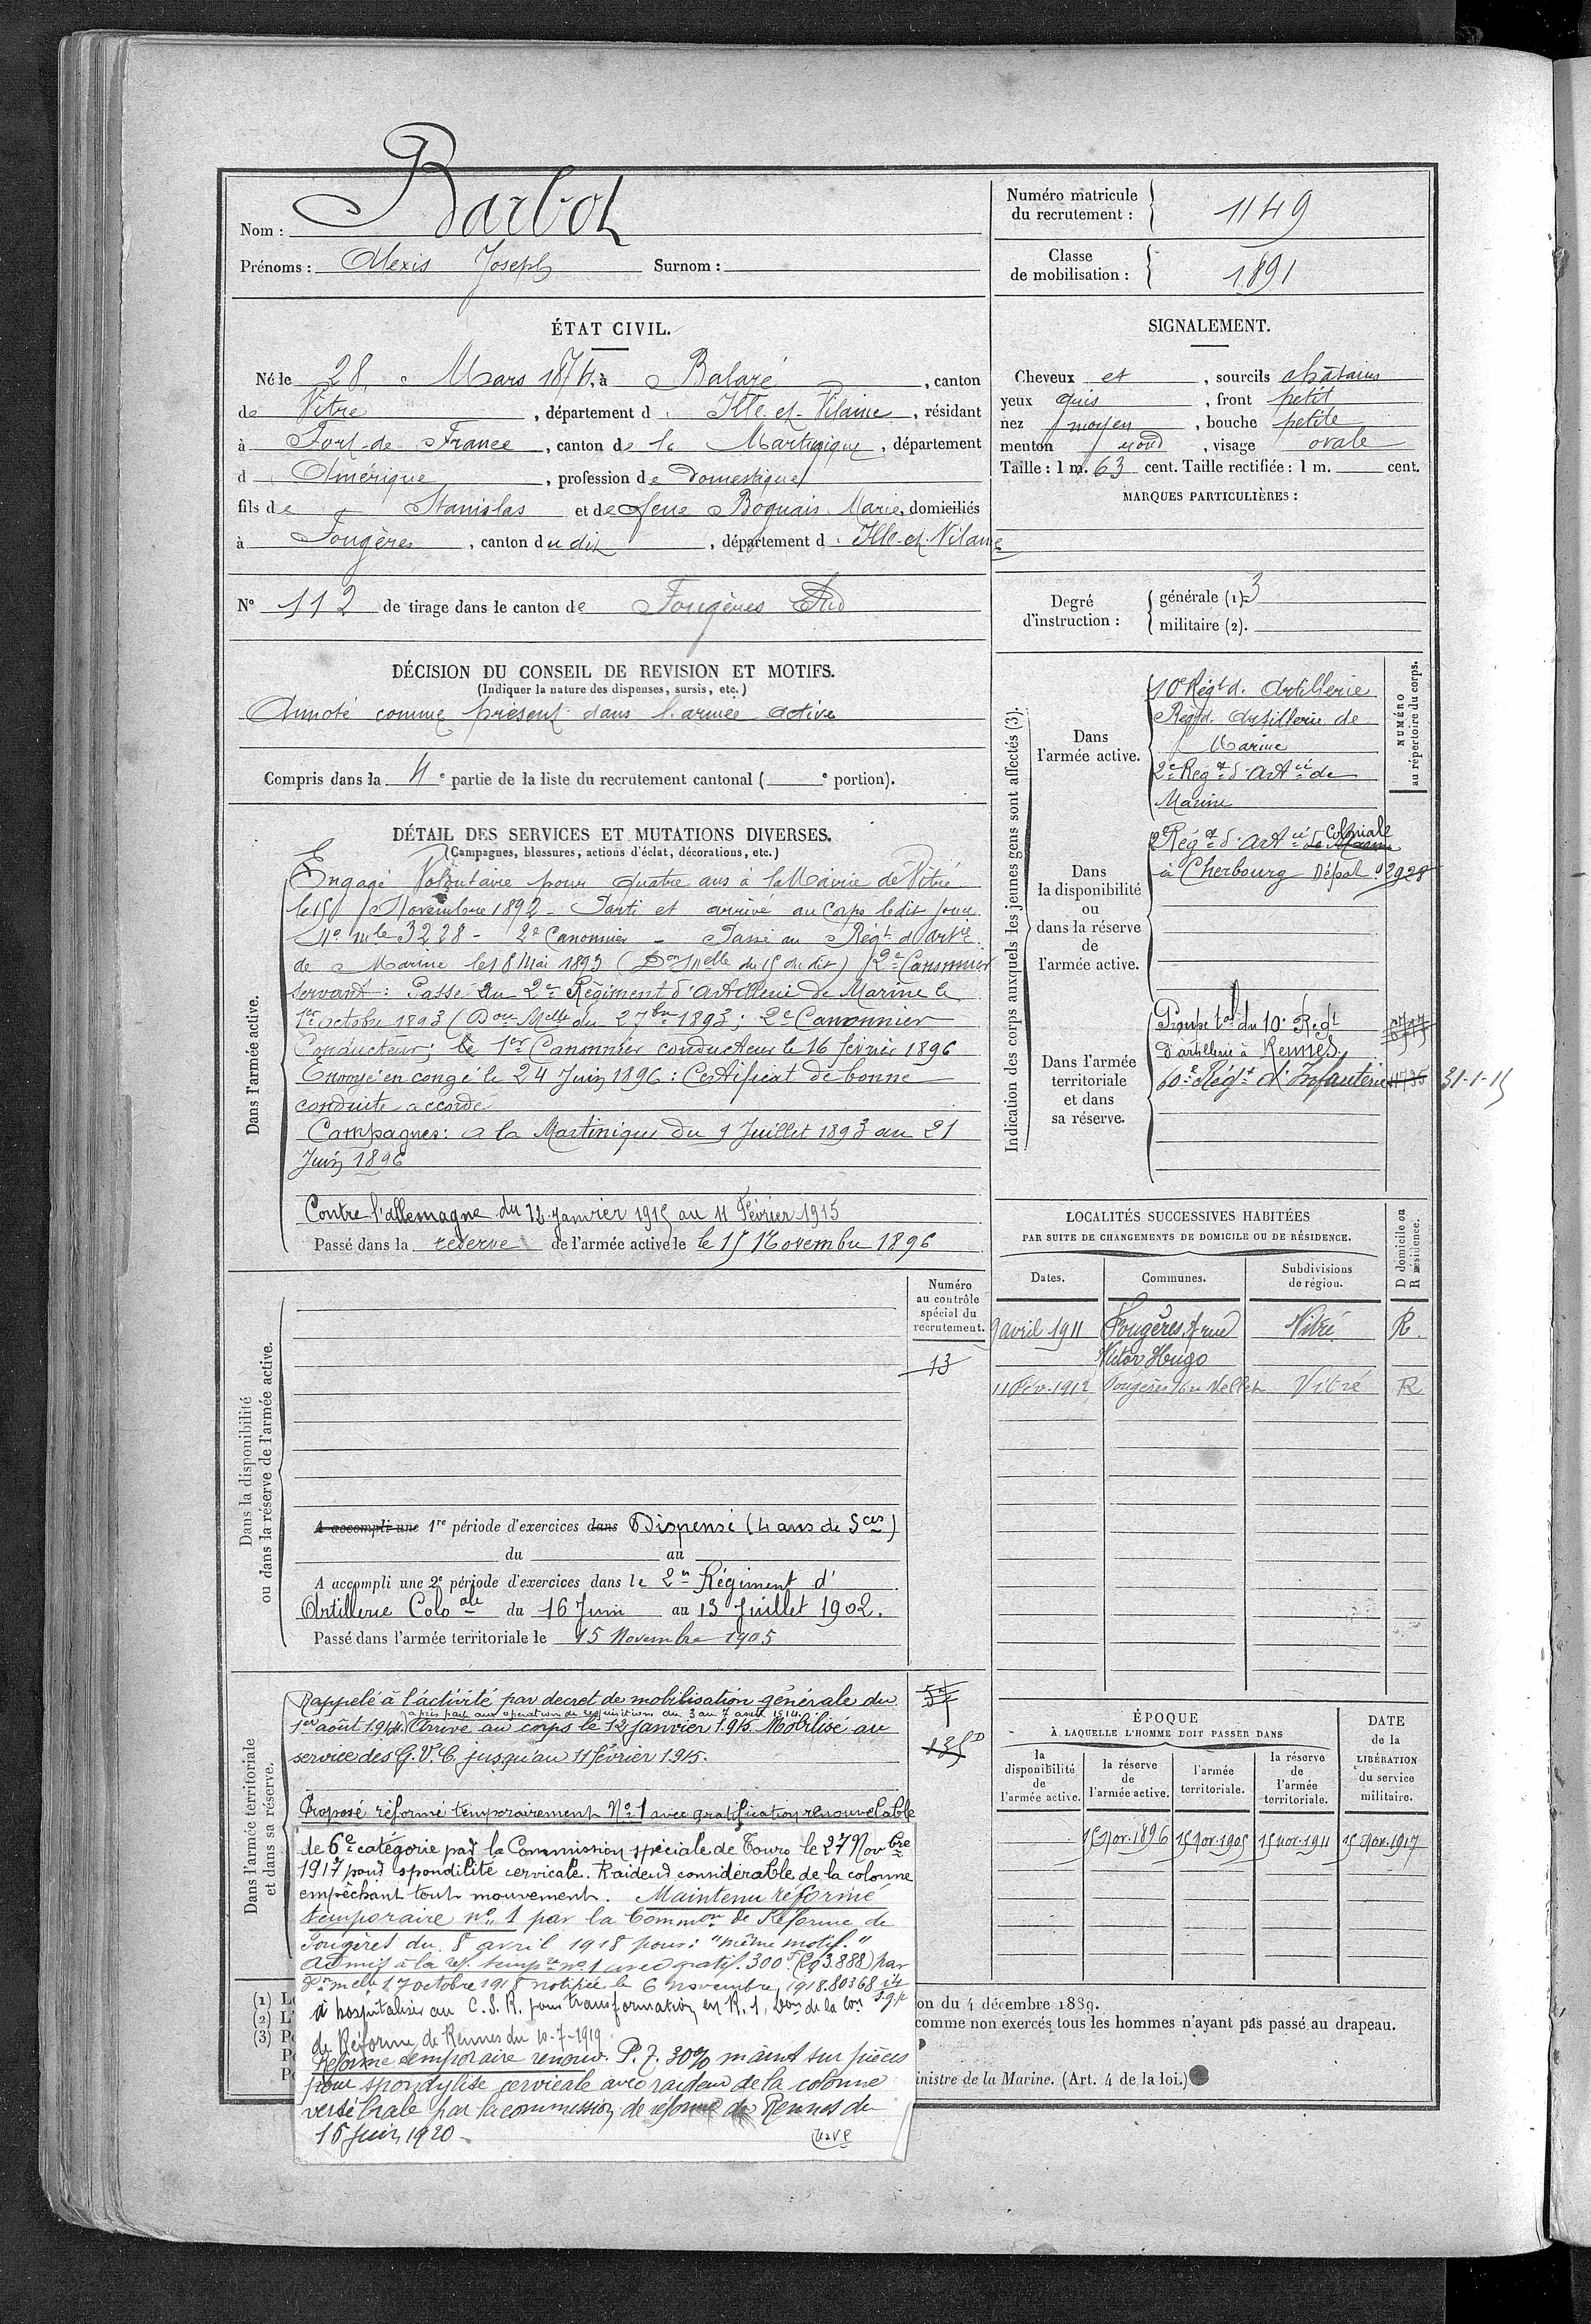 Nom : Barbot
Prénoms : Alexis Joseph Surnom :
Numéro matricule du recrutement : 1149
Classe de mobilisation : 1891
ÉTAT CIVIL.
Né le 28 Mars 1871, à Balazé, canton
de Vitré, département d'Ille-et-Vilaine, résidant
à Fort-de-France, canton de la Martinique, département
d'Amérique, profession de domestique
fils de Stanislas et de feue Boquais Marie, domiciliés
à Fougères, canton du dit, département d'Ille-et-Vilaine
N° 112 de tirage dans le canton de Fougères Sud
SIGNALEMENT.
Cheveux et, sourcils châtains
yeux gris, front petit
nez moyen, bouche petite
menton rond, visage ovale
Taille : 1 m. 63 cent. Taille rectifiée : 1 m. cent.
MARQUES PARTICULIÈRES :
Degré d'instruction :
générale (1). 3
militaire (2).
DÉCISION DU CONSEIL DE REVISION ET MOTIFS.
(Indiquer la nature des dispenses, sursis, etc.)
Annoté comme présent dans l'armée active
Compris dans la 4e partie de la liste du recrutement cantonal ( e portion).
DÉTAIL DES SERVICES ET MUTATIONS DIVERSES.
(Campagnes, blessures, actions d'éclat, décorations, etc.)
Dans l'armée active.
Engagé Volontaire pour quatre ans à la Mairie de Vitré
le 15 Novembre 1892 - Parti et arrivé au Corps ledit jour
N° mle 3228 - 2e Canonnier - Passé au Régt d'Artie
de Marine le 18 Mai 1893 (Don Mlle du 15 du dit) 2e Canonnier
servant : Passé au 2e Régiment d'Artillerie de Marine le
1er octobre 1893 (Don Mlle du 27 bre 1893 ; 2e Canonnier
Conducteur ; le 1er Canonnier conducteur le 16 février 1896
Envoyé en congé le 24 Juin 1896 : Certificat de bonne
conduite accordé
Campagnes : a la Martinique du 9 Juillet 1893 au 21
Juin 1896
Contre l'allemagne du 12 janvier 1915 au 11 Février 1915
Passé dans la réserve de l'armée active le le 15 Novembre 1896
Dans la disponibilité ou dans la réserve de l'armée active.
Numéro au contrôle spécial du recrutement.
13
A accompli une 1re période d'exercices dans Dispensé (4 ans de Sces)
du au
A accompli une 2e période d'exercices dans le 2e Régiment d'
Artillerie Colo ale du 16 Juin au 13 Juillet 1902.
Passé dans l'armée territoriale le 15 Novembre 1905
Dans l'armée territoriale et dans sa réserve.
Rappelé à l'activité par decret de mobilisation générale du
a pris part aux opérations de réquisitions du 3 au 7 août 1914
1er août 1914. Arrivé au corps le 12 janvier 1915. Mobilisé au
service des G.V.C. jusqu'au 11 février 1915.
Proposé réformé temporairement N° 1 avec gratification renouvelable
de 6e catégorie par la Commission spéciale de Tours le 27 Novbre
1917 pour spondilite cervicale. Raideur considérable de la colonne
empêchant tout mouvement. Maintenu réformé
temporaire n° 1 par la Common de Réforme de
Fougères du 8 avril 1918 pour : "même motif."
Admis à la réf. tempre n° 1 avec gratif. 300f (Gg 3.888) par
Don melle 17 octobre 1918 notifiée le 6 novembre 1918. 80368
à hospitaliser au C.S.R. pour transformation en R.1, Don de la Con
de Réforme de Rennes du 10-7-1919.
Réforme temporaire renouv. P.7. 30% maint sur pièces
pour spondylite cervicale avec raideur de la colonne
vertébrale par la commission de réforme de Rennes du
15 Juin 1920.
Indication des corps auxquels les jeunes gens sont affectés (3).
NUMÉRO au répertoire du corps.
Dans l'armée active.
10e Régt d'Artillerie
Régt d'Artillerie de
Marine
2e Régt d'Artie de
Marine
Dans la disponibilité ou dans la réserve de l'armée active.
2e Régt d'Artie Coloniale
à Cherbourg Dépôt 02928
Dans l'armée territoriale et dans sa réserve.
Groupe tal du 10e Régt
d'artillerie à Rennes
60e Régt d'Infanterie 31-1-15
LOCALITÉS SUCCESSIVES HABITÉES
PAR SUITE DE CHANGEMENTS DE DOMICILE OU DE RÉSIDENCE.
Dates. Communes. Subdivisions de région. D domicile ou R résidence.
9 avril 1911 Fougères, rue Victor Hugo Vitré R.
11 Fév. 1912 Fougères Vitré R
ÉPOQUE
À LAQUELLE L'HOMME DOIT PASSER DANS
la disponibilité de l'armée active.
la réserve de l'armée active.
l'armée territoriale.
la réserve de l'armée territoriale.
DATE de la LIBÉRATION du service militaire.
15 Nov. 1896 15 Nov. 1905 15 Nov. 1911 15 Nov. 1917
on du 4 décembre 1889.
comme non exercés tous les hommes n'ayant pas passé au drapeau.
inistre de la Marine. (Art. 4 de la loi.)